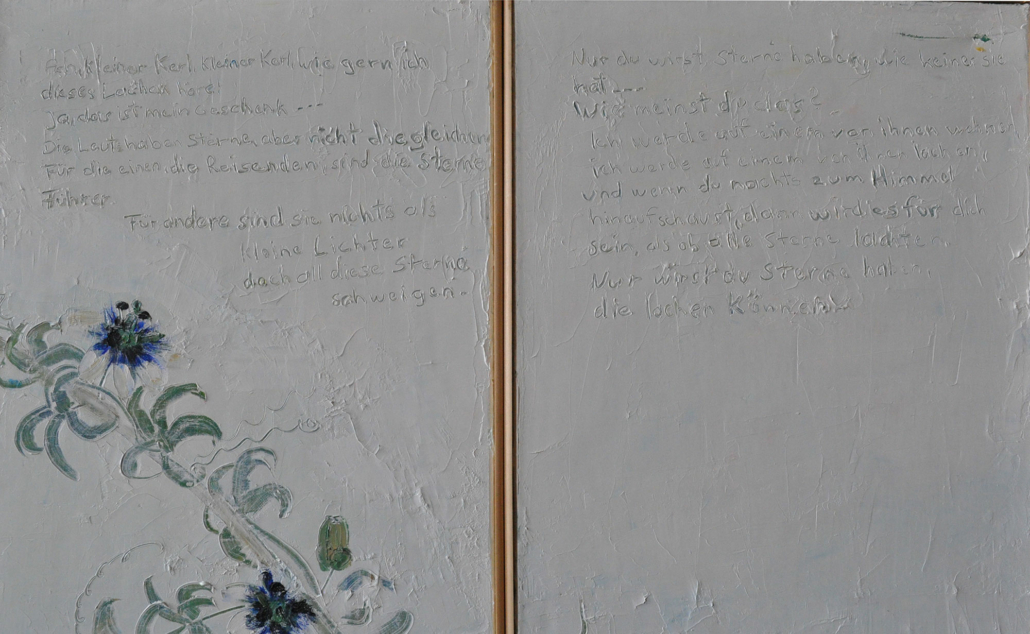 Ach, kleiner Kerl, kleiner Kerl, wie gern ich
dieses Lachen höre!
Ja, das ist mein Geschenk ---
Die Leute haben Sterne, aber nicht die gleichen
Für die einen, die Reisenden, sind die Sterne
Führer.
Für andere sind sie nichts als
kleine Lichter
doch all diese Sterne
schweigen.
Nur du wirst Sterne haben, wie keiner sie
hat ---
Wie meinst du das?
Ich werde auf einem von ihnen wohnen
ich werde auf einem von ihnen lachen,
und wenn du nachts zum Himmel
hinaufschaust, dann wird es für dich
sein, als ob alle Sterne lachten.
Nur wirst du Sterne haben,
die lachen können!